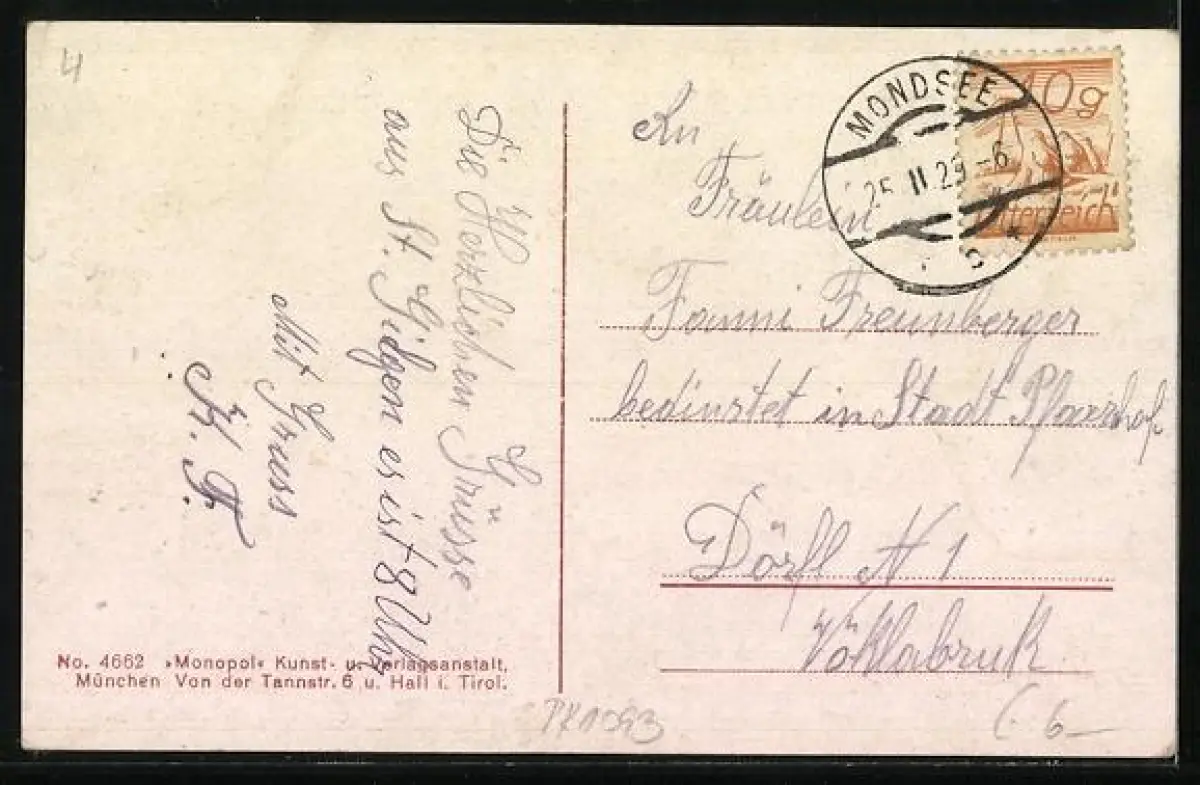 4
Die Herzlichen Grüsse
aus St. Gilgen es ist 8 Uhr
Mit Gruss
MONDSEE
25 II 29-6
10g
Österreich
An
Fräulein
Fanni Freunberger
bedinstet in Stadt Pfarrhof
Dörfl N 1
Vöklabruk
No. 4662 »Monopol« Kunst- u. Verlagsanstalt,
München Von der Tannstr. 6 u. Hall i. Tirol.
6-